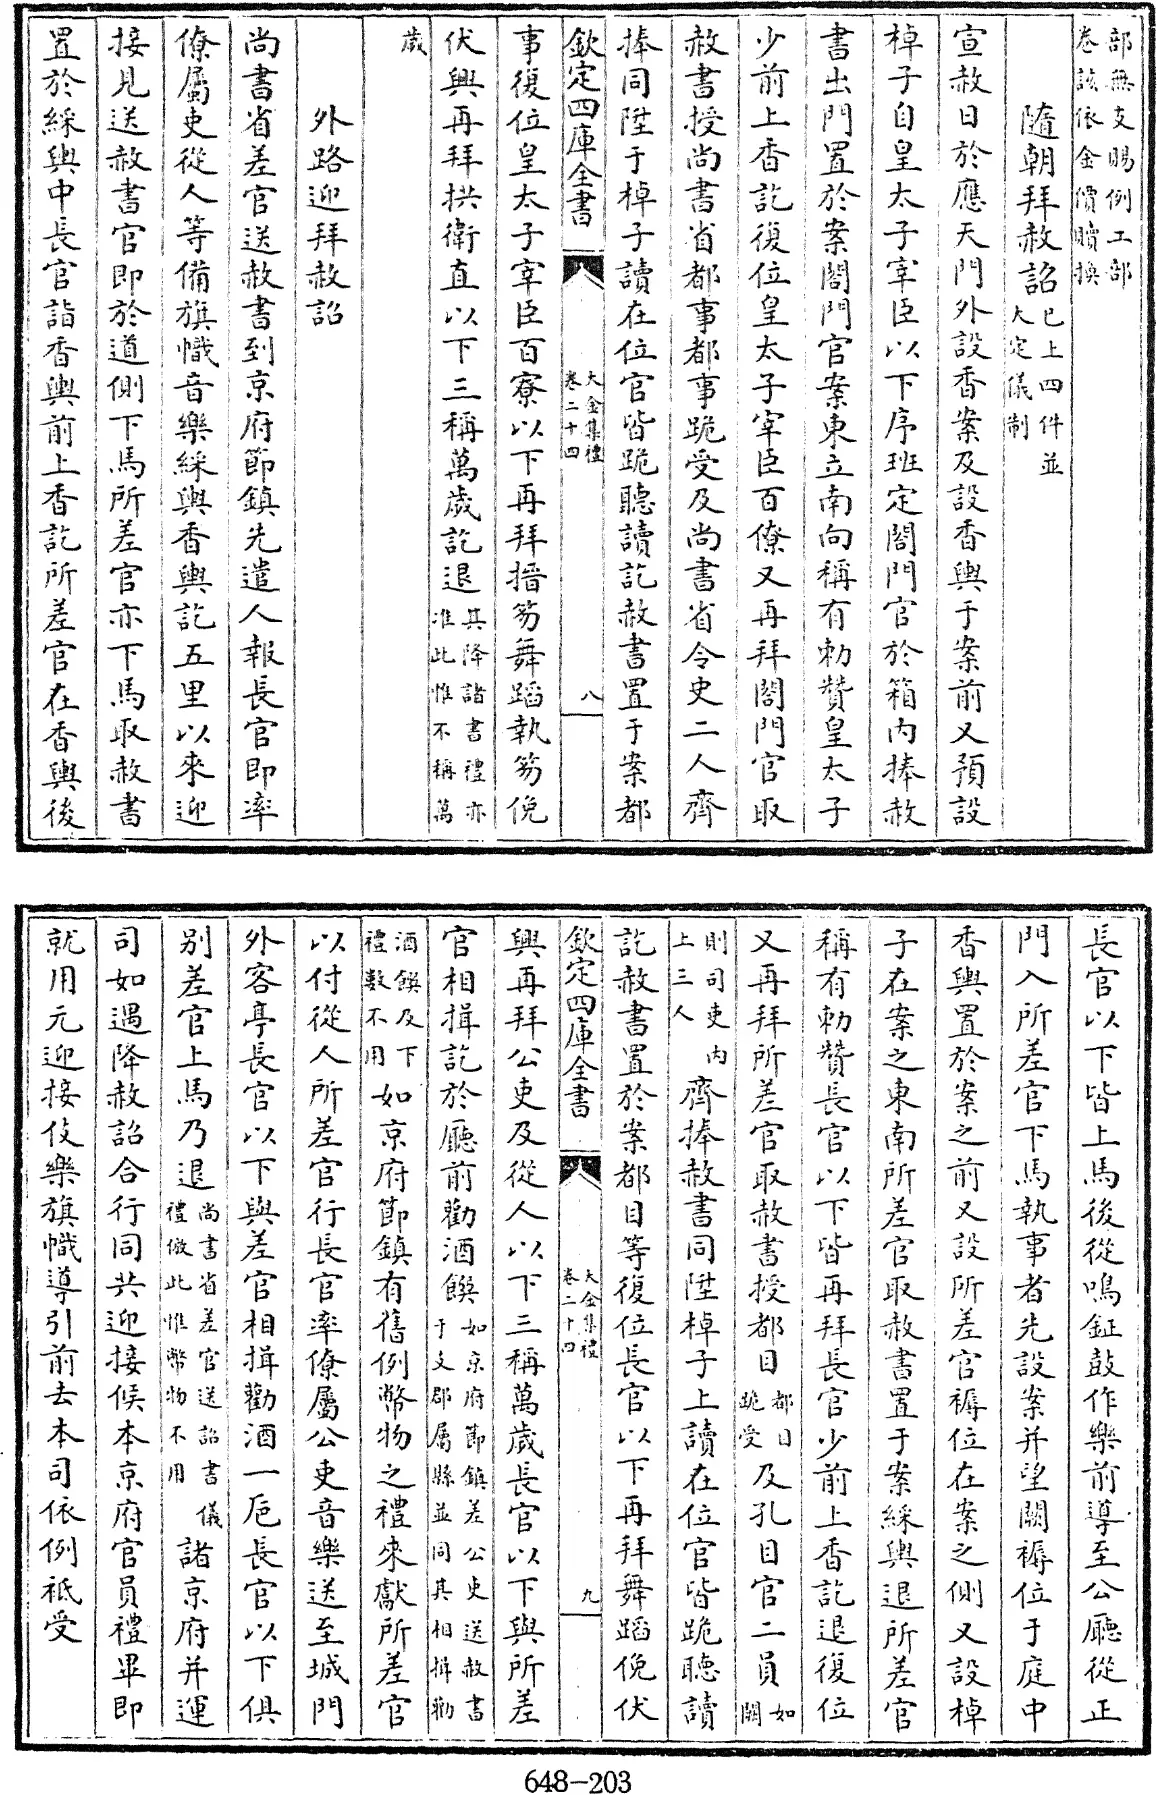 部無支賜例工部
卷該依金價贖換
隨朝拜赦詔已上四件並大定儀制
宣赦日於應天門外設香案及設香輿于案前又預設
棹子自皇太子宰臣以下序班定閤門官於箱内捧赦
書出門置於案閤門官案東立南向稱有勅贊皇太子
少前上香訖復位皇太子宰臣百僚又再拜閤門官取
赦書授尚書省都事都事跪受及尚書省令史二人齊
捧同陞于棹子讀在位官皆跪聽讀訖赦書置于案都
欽定四庫全書
大金集禮
卷二十四
八
事復位皇太子宰臣百寮以下再拜搢笏舞蹈執笏俛
伏興再拜拱衛直以下三稱萬歲訖退其降諸書禮亦准此惟不稱萬
歲
外路迎拜赦詔
尚書省差官送赦書到京府節鎮先遣人報長官即率
僚屬吏從人等備旗幟音樂綵輿香輿訖五里以來迎
接見送赦書官即於道側下馬所差官亦下馬取赦書
置於綵輿中長官詣香輿前上香訖所差官在香輿後
長官以下皆上馬後從鳴鉦鼓作樂前導至公廳從正
門入所差官下馬執事者先設案并望闕褥位于庭中
香輿置於案之前又設所差官褥位在案之側又設棹
子在案之東南所差官取赦書置于案綵輿退所差官
稱有勅贊長官以下皆再拜長官少前上香訖退復位
又再拜所差官取赦書授都目都目跪受及孔目官二員如闕
則司吏内上三人齊捧赦書同陞棹子上讀在位官皆跪聽讀
訖赦書置於案都目等復位長官以下再拜舞蹈俛伏
欽定四庫全書
大金集禮
卷二十四
九
興再拜公吏及從人以下三稱萬歲長官以下與所差
官相揖訖於廳前勸酒饌如京府節鎮差公吏送赦書于支郡屬縣並同其相揖勸
酒饌及下禮數不用如京府節鎮有舊例幣物之禮來獻所差官
以付從人所差官行長官率僚屬公吏音樂送至城門
外客亭長官以下與差官相揖勸酒一巵長官以下俱
别差官上馬乃退尚書省差官送詔書儀禮倣此惟幣物不用諸京府并運
司如遇降赦詔合行同共迎接候本京府官員禮畢即
就用元迎接伎樂旗幟導引前去本司依例祗受
648-203